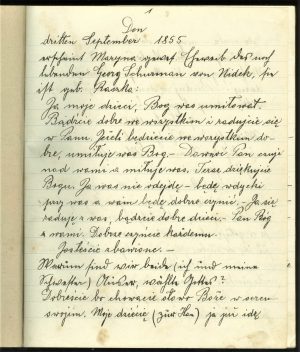 1
Den
dritten September 1855
erscheint Maryna gewes. Eheweib des noch
lebenden Georg Schurman von Nidek, sie
ist geb. Kaarka:
Ja moje dzieci, Bog was umiłował.
Bądźcie dobre we wszystkim i radujcie się
w Panu. Jeżli będziecie we wszystkim do-
bre, umiłuje was Bog. – Dawać Pan czuje
nad wami a miłuje was. Teraz dziękujcie
Bogu. Ja was nie odejdę – będę wdycki
przy was a wam będę dobre czynić. Ja się
raduję z was, bądźcie dobre dzieci. – Pan Bóg
z wami. Dobrze czyńcie każdemu.
Jesteście zbawione. –
Warum sind wir beide (ich und meine
Schwester) Gottes?
Dobrzeście bo chowacie słowo Boże w sercu
swojem. Moje dziecię (zur) ja już idę